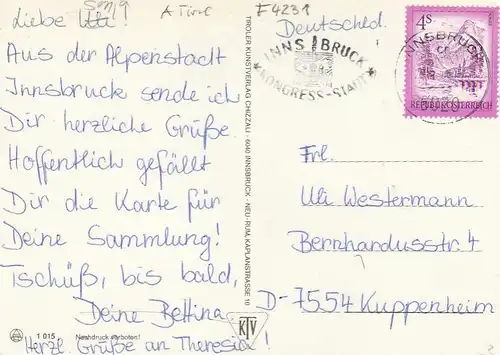 Liebe Uli!
Aus der Alpenstadt
Innsbruck sende ich
Dir herzliche Grüße.
Hoffentlich gefällt
Dir die Karte für
Deine Sammlung!
Tschüß, bis bald,
Deine Bettina
Herzl. Grüße an Theresia!
1 015
Nachdruck verboten!
TIROLER KUNSTVERLAG CHIZZALI · 6040 INNSBRUCK - NEU-RUM, KAPLANSTRASSE 10
KTV
A Tirol
F 4231
Deutschld.
INNSBRUCK
KONGRESS-STADT
4 S
REPUBLIK ÖSTERREICH
INNSBRUCK
6020
Frl.
Uli Westermann
Bernhardusstr. 4
D-7554 Kuppenheim